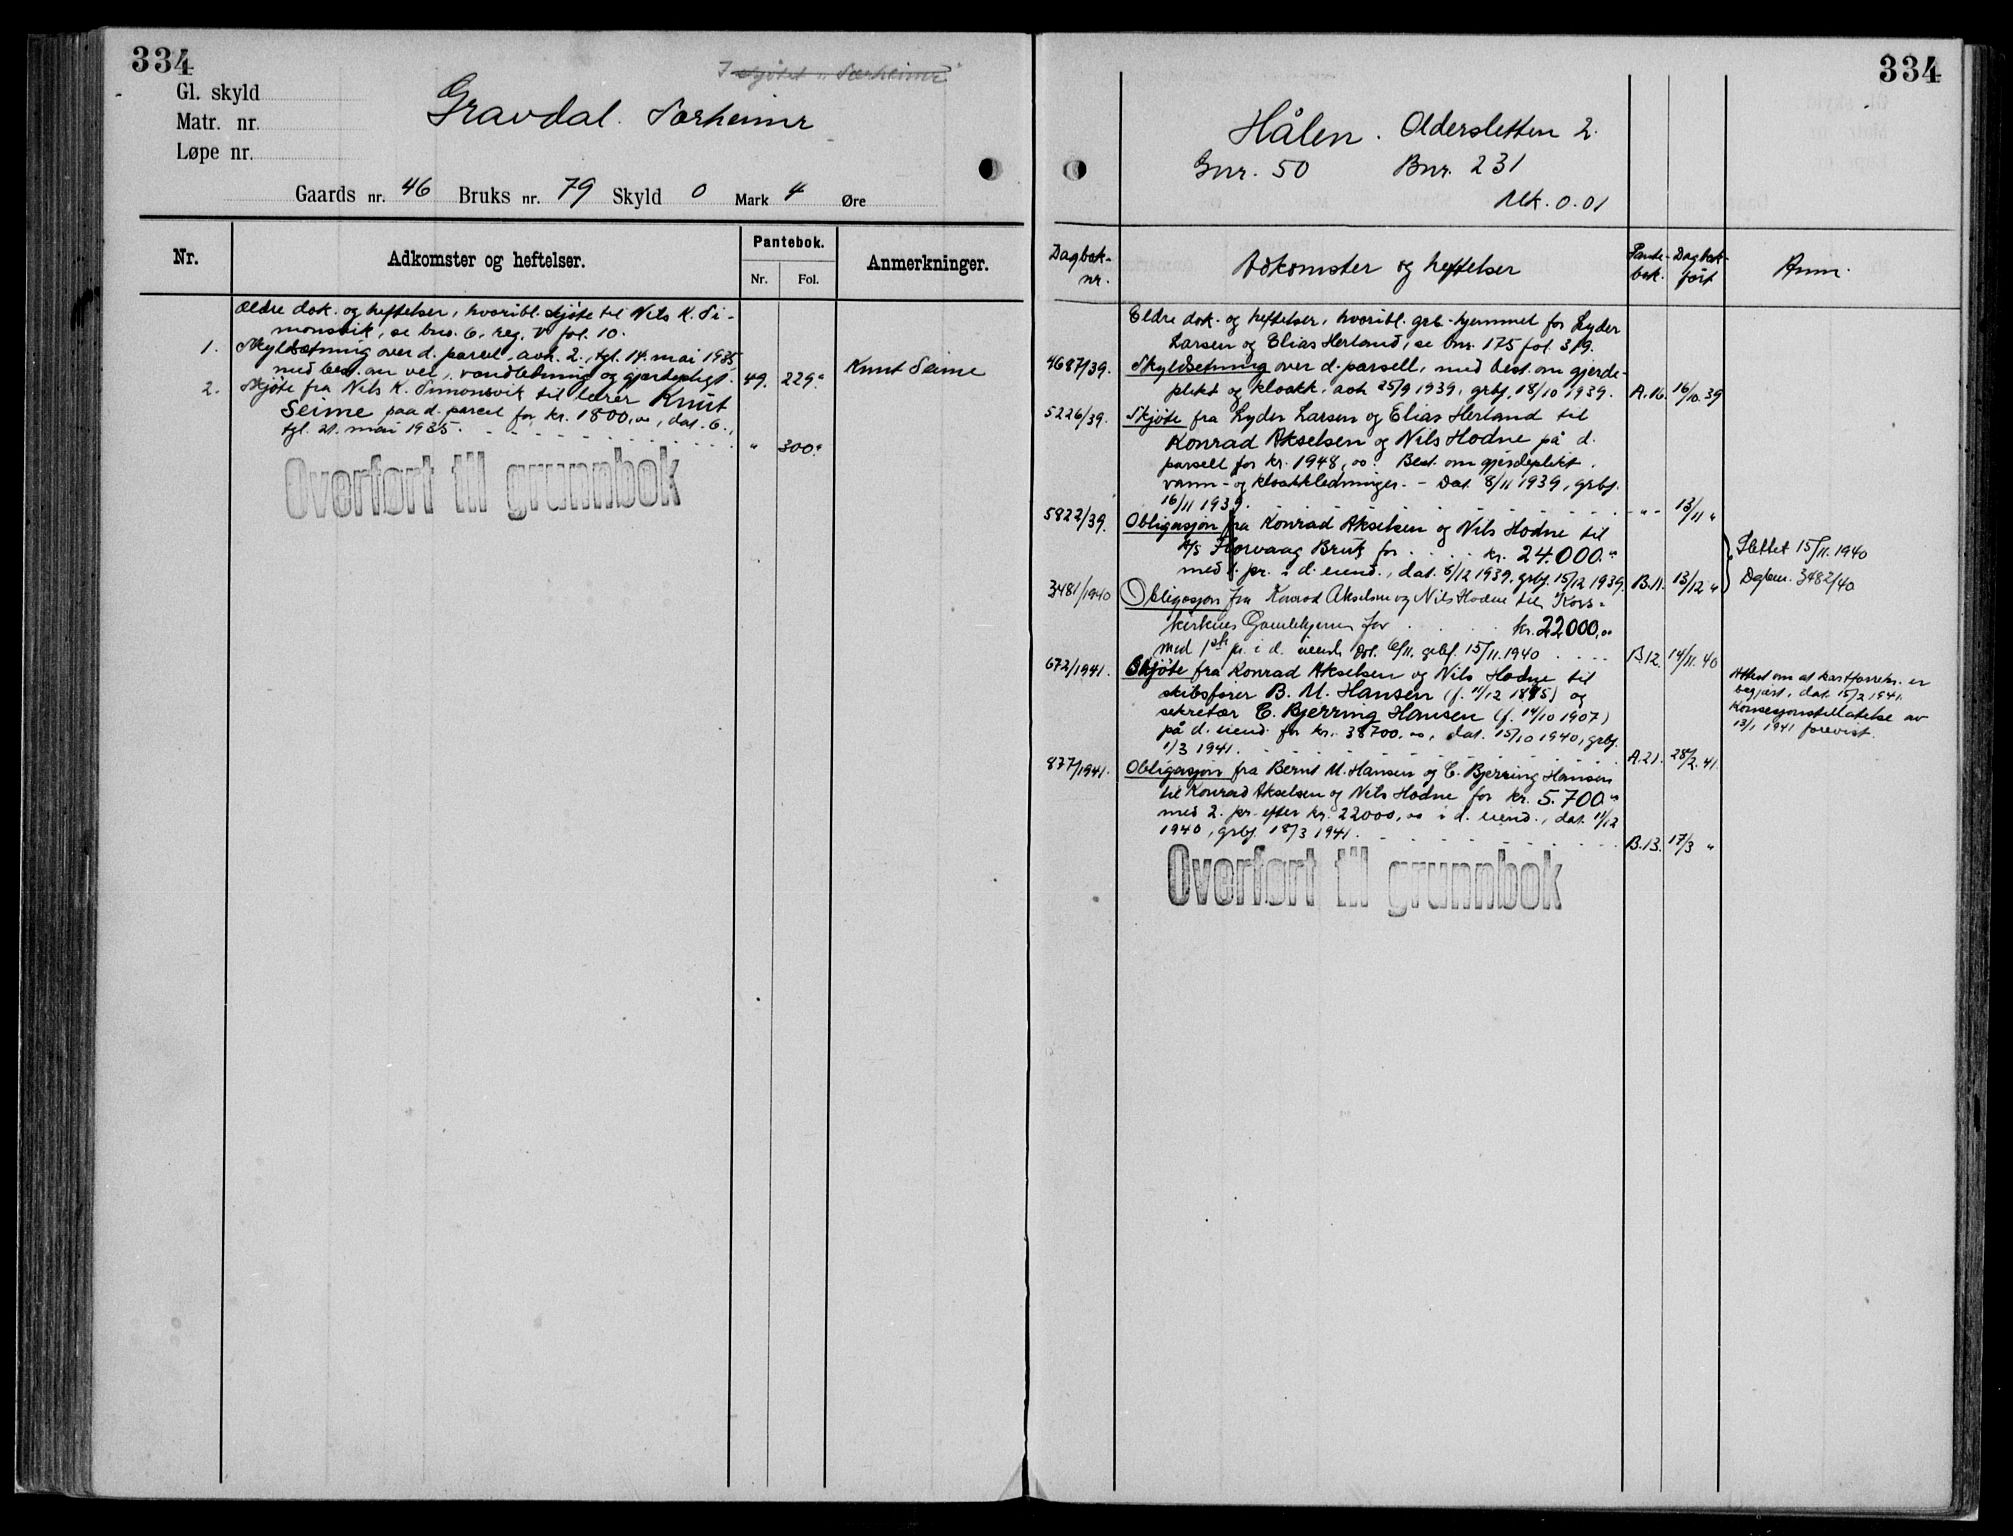 334
I skjøtet "Særheimr"
Gl. skyld
Matr. nr.
Løpe nr.
Gravdal. Særheimr
Gaards nr. 46 Bruks nr. 79 Skyld 0 Mark 4 Øre
Nr.
Adkomster og heftelser.
Pantebok.
Nr. Fol.
Anmerkninger.
Ældre dok. og heftelser, hvoribl. skjøte til Nils K. Si-
monsvik, se bno. 6, reg. V fol. 10.
1. Skyldsætning over d. parcel, avh. 2., tgl. 14. mai 1935,
med best. om vei, vandledning og gjærdepligt. 49. 229.
Knut Seime
2. Skjøte fra Nils K. Simonsvik til lærer Knut
Seime paa d. parcel for kr. 1800,oo, dat. 6.,
tgl. 21. mai 1935. " 300.
Overført til grunnbok
334
Hålen. Oldersletten 2.
Gnr. 50 Bnr. 231
Mk. 0.01
Dagbok-
nr.
Adkomster og heftelser
Pante-
bok.
Dagbok-
ført
Anm.
Eldre dok. og heftelser, hvoribl. grb.-hjemmel for Lyder
Larsen og Elias Herland, se bnr. 175 fol. 319.
4687/39. Skyldsetning over d. parsell, med best. om gjerde-
plikt og kloakk, avh 25/9 1939, grbf. 18/10 1939. A.16. 16/10.39
5226/39. Skjøte fra Lyder Larsen og Elias Herland til
Konrad Akselsen og Nils Hodne på d.
parsell for kr. 1948,oo. Best. om gjerdeplikt,
vann- og kloakkledninger. - Dat. 8/11 1939, grbf.
16/11 1939. - " - 13/11 "
5822/39. Obligasjon fra Konrad Akselsen og Nils Hodne til
A/S Florvaag Bruk for kr. 24.000.-
med 1. pr. i d. eiend., dat. 8/12 1939, grbf. 15/12 1939. B.11. 13/12 "
Slettet 15/11.1940
Dagbnr. 3482/40
3481/1940 Obligasjon fra Konrad Akselsen og Nils Hodne til Kors-
kirkens Gamlehjem for kr. 22000,oo
med 1ste pr. i d. eiend. Dat. 6/11. grbf. 15/11.1940 B12. 14/11.40
672/1941. Skjøte fra Konrad Akselsen og Nils Hodne til
skibsfører B. M. Hansen (f. 11/12 1875) og
sekretær C. Bjerring Hansen (f. 14/10 1907)
på d. eiend. for kr. 38700,oo, dat. 15/10 1940, grbf.
1/3 1941. A.21. 28/2.41.
Attest om at kartforretn. er
begjært, dat. 15/2 1941.
Konsesjonstillatelse av
13/1 1941 forevist.
877/1941. Obligasjon fra Bernt M. Hansen og C. Bjerring Hansen
til Konrad Akselsen og Nils Hodne for kr. 5.700.-
med 2. pr. efter kr. 22000,oo i d. eiend., dat. 11/12
1940, grbf. 18/3 1941. B.13. 17/3 "
Overført til grunnbok